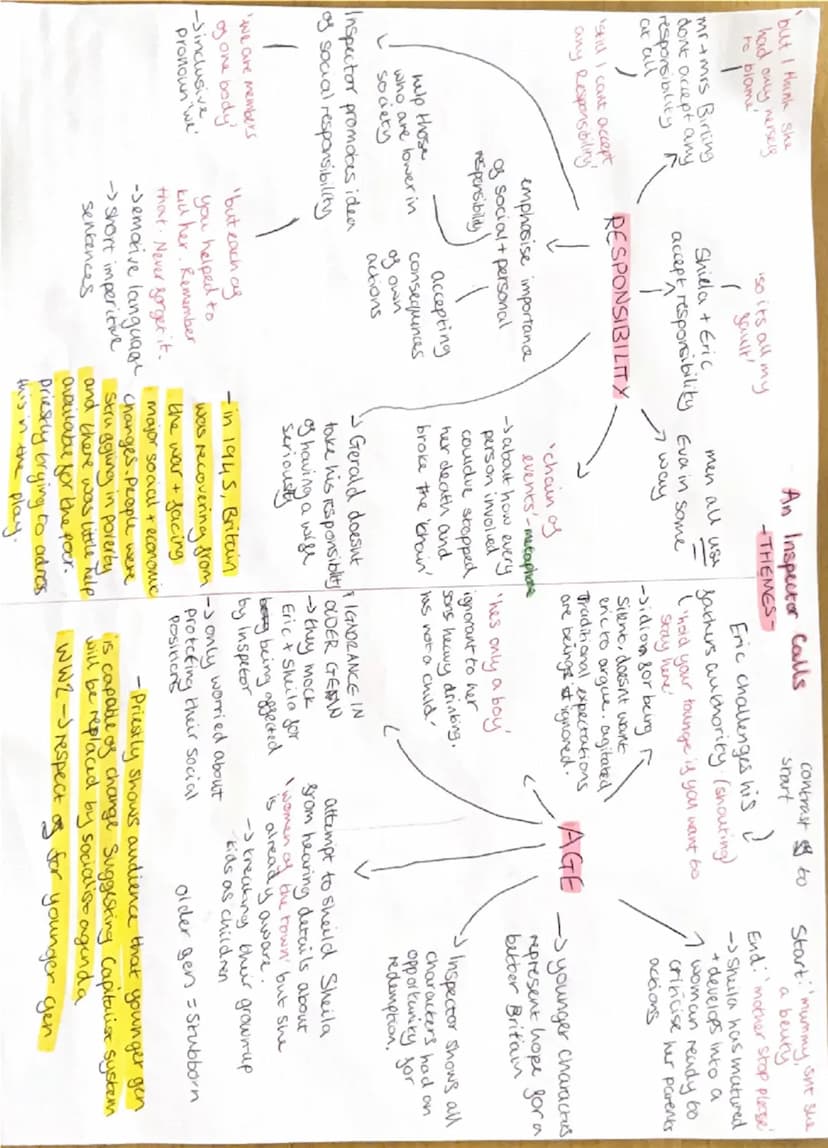 An Inspector Calls
- THEMES -
'but I think she
had only herself
to blame'
mr + mrs Birling
dont accept any
responsibility
at all
'still I cant accept
any Responsibility'
'so its all my
fault'
Shiela + Eric
accept responsibility
men all use
Eva in some
way
RESPONSIBILITY
emphasise importance
of social + personal
responsibility
help those
who are lower in
society
accepting
consequences
of own
actions
Inspector promotes idea
of social responsibility
'we are members
of one body'
→ inclusive
pronoun 'we'
'but each of
you helped to
kill her. Remember
that. Never forget it.
→ emotive language
→ short imperitive
sentences
'chain of
events' - metaphore
→ about how every
person involved
couldve stopped
her death and
broke the 'chain'
→ Gerald doesnt
take his responsibility
of having a wife
seriously
- in 1945, Britain
was recovering from
the war + facing
major social + economic
changes. people were
struggling in poverty
and there was little help
available for the poor.
priestly trying to adress
this in the play.
contrast of to
start
Eric challenges his
fathers authority (shouting)
'hold your tounge if you want to
stay here'
→ idiom for being
silent, doesnt want
eric to argue. agitated
traditional expectations
are being ignored.
Start: 'mummy, isnt she
a beuty
End: 'mother stop please'
→ Sheila has matured
+ develops into a
woman ready to
criticise her parents
actions
AGE
'hes only a boy'
ignorant to her
sons heavy drinking.
has not a child.
→ younger charactus
represent hope for a
better Britain
→ Inspector shows all
characters had an
opportunity for
redemption.
IGNORANCE IN
OLDER GEN
→ they mock
Eric + Sheila for
being affected
by Inspector
→ only worried about
protecting their social
positions
attempt to sheild Sheila
from hearing details about
'women of the town' but she
is already aware.
→ treating their grownup
kids as children
older gen = stubborn
- Priestly shows audience that younger gen
is capable of change. Suggesting Capitalist system
will be replaced by socialist agenda
WW2 → respect of for younger gen